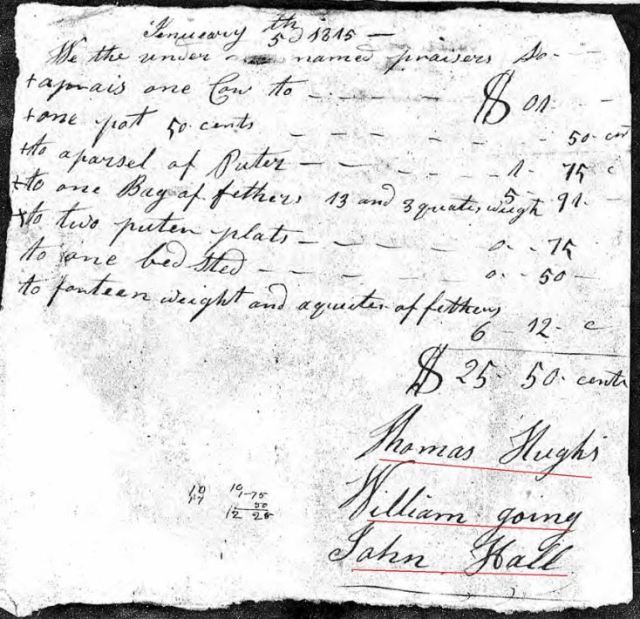 January 5th d 1815 —
We the under named praisers do —
+aprais one Cow to — — — $ 01 —
+one pot 50 cents — — — — 50 cen
+to aparsel of Puter — — — 1 75 c
+to one Bag of fethers 13 and 3 quates weigh 5 91 —
+to two puten plats — — — 0 - 75
to one bed sted — — — 0 - 50
to fonteen weight and aqueter of fethers
6 12 c
$ 25 50 cents
Thomas Hughs
William going
John Hall
10 10
17 1-75
50
12 25